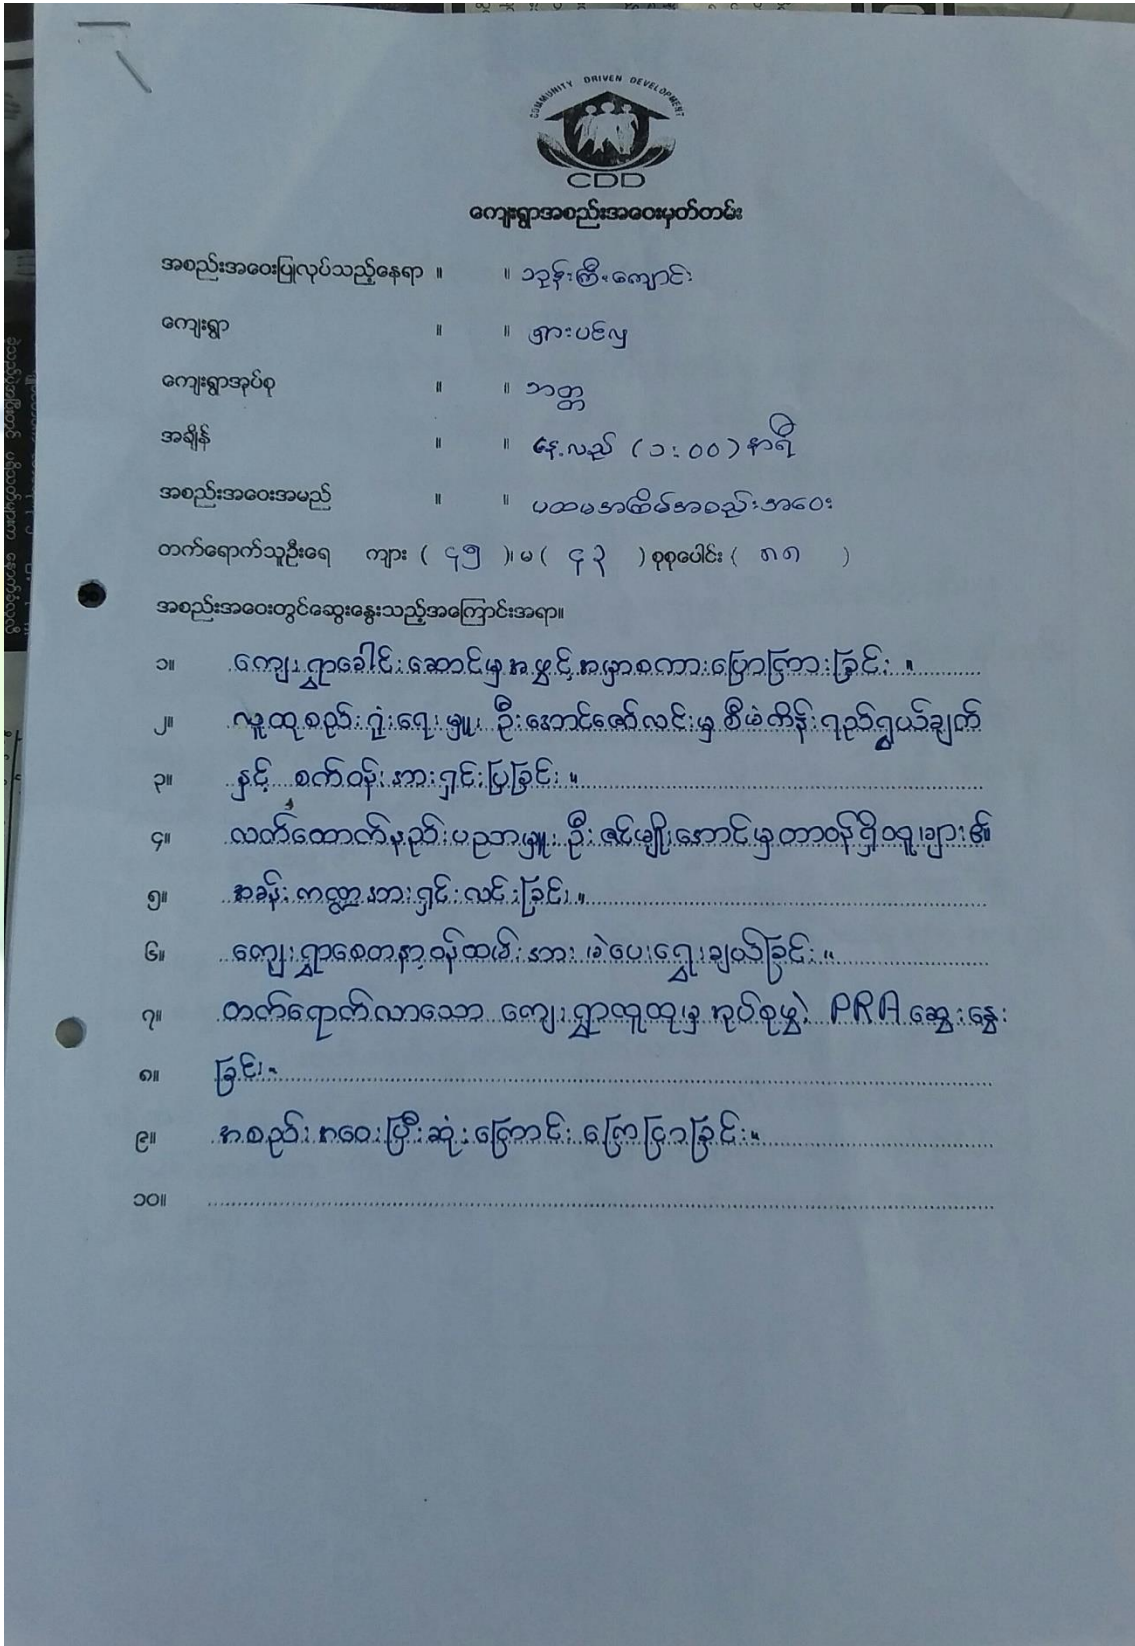 COMMUNITY DRIVEN DEVELOPMENT
CDD
ကျေးရွာအစည်းအဝေးမှတ်တမ်း
အစည်းအဝေးပြုလုပ်သည့်နေရာ ။ ။ ဘုန်းကြီးကျောင်း
ကျေးရွာ ။ ။ ရှားပင်လှ
ကျေးရွာအုပ်စု ။ ။ ဘတ္တ
အချိန် ။ ။ နေ့လည် (၁:၀၀) နာရီ
အစည်းအဝေးအမည် ။ ။ ပထမအကြိမ်အစည်းအဝေး
တက်ရောက်သူဦးရေ ကျား ( ၄၅ )၊ မ ( ၄၃ ) စုစုပေါင်း ( ၈၈ )
အစည်းအဝေးတွင်ဆွေးနွေးသည့်အကြောင်းအရာ။
၁။ ကျေးရွာခေါင်းဆောင်မှအဖွင့်အမှာစကားပြောကြားခြင်း ။
၂။ လူထုစည်းရုံးရေးမှူး ဦးအောင်ဇော်လင်းမှ စီမံကိန်းရည်ရွယ်ချက်
၃။ နှင့် စက်ဝန်းအားရှင်းပြခြင်း ။
၄။ လက်ထောက်နည်းပညာမှူး ဦးဇင်မျိုးအောင်မှတာဝန်ရှိသူများ၏
၅။ အခန်းကဏ္ဍအားရှင်းလင်းခြင်း ။
၆။ ကျေးရွာစေတနာ့ဝန်ထမ်းအား မဲပေးရွေးချယ်ခြင်း ။
၇။ တက်ရောက်လာသော ကျေးရွာလူထုမှ အုပ်စုဖွဲ့ PRA ဆွေးနွေး
၈။ ခြင်း ။
၉။ အစည်းအဝေးပြီးဆုံးကြောင်း ကြေငြာခြင်း ။
၁၀။